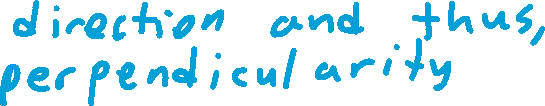 direction and thus,
perpendicularity